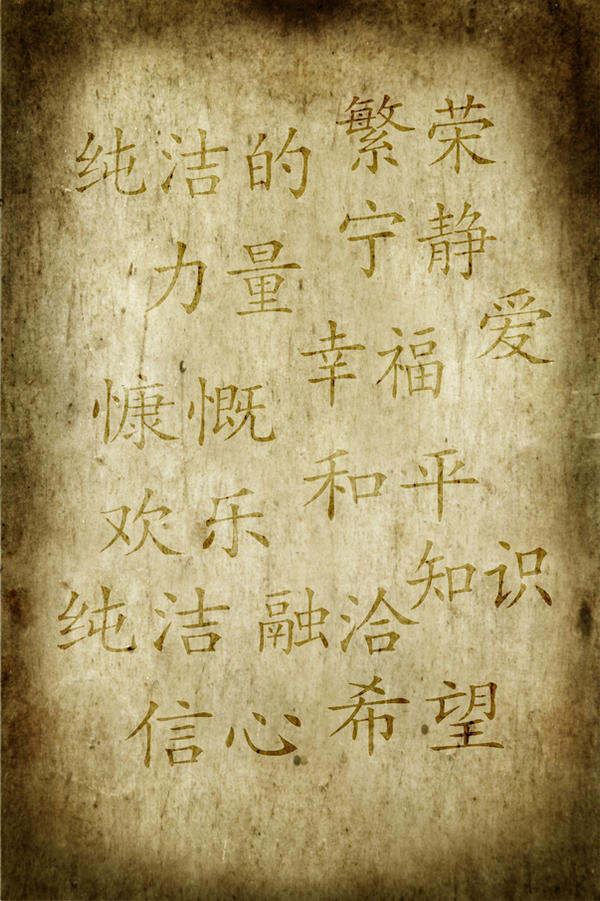 繁荣
纯洁的
宁静
力量
爱
幸福
慷慨
和平
欢乐
知识
纯洁
融洽
希望
信心